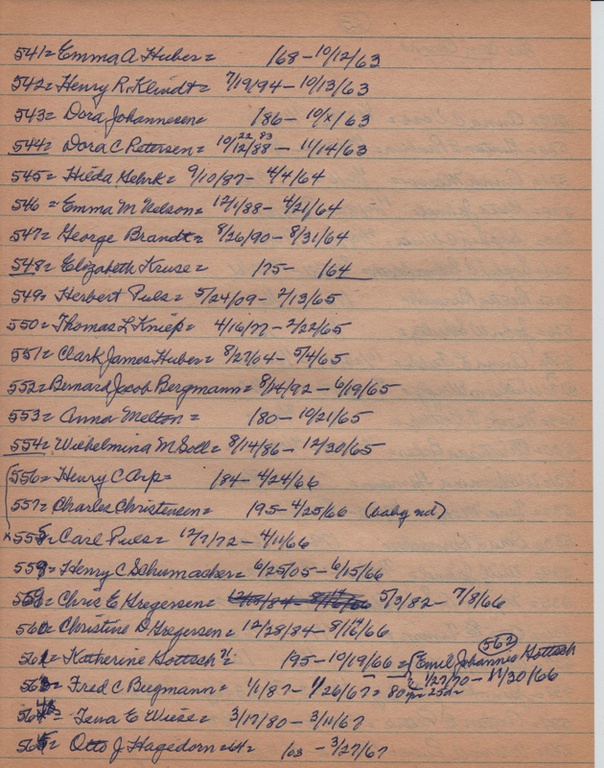 541= Emma A Huber= /68 - 10/12/63
542= Henry R. Klindt= 7/19/94 - 10/13/63
543= Dora Johannesen= /86 - 10/x/63
544= Dora C Petersen= 10/12/88 22 83 - 11/14/63
545= Hilda Gehrk= 9/10/87 - 4/4/64
546 = Emma M Nelson= 12/1/88 - 4/21/64
547= George Brandt= 8/26/90 - 8/31/64
548= Elizabeth Kruse= /75 - /64
549= Herbert Puls= 5/24/09 - 2/13/65
550= Thomas L Kniep= 4/16/77 - 2/22/65
551= Clark James Huber= 8/27/04 - 5/4/65
552= Bernard Jacob Bergmann= 8/14/92 - 6/19/65
553= Anna Melton= /80 - 10/21/65
554= Wilhelmina M Soll= 8/14/86 - 12/30/65
556= Henry C Arp= /84 - 4/24/66
557= Charles Christensen= 195 - 4/25/66 (baby nd)
x 555= Carl Puls= 12/7/72 - 4/11/66
559= Henry C Schumacher= 6/25/05 - 6/15/66
Chris E Gregersen= 5/3/82 - 7/8/66
560= Christine D Gregersen= 12/28/84 - 8/14/66
561= Katherine Gottsch 195 - 10/19/66 = Emil Johannes Gottsch 562
1/27/70 - 11/30/66
563= Fred C Bugmann= 1/1/87 - 1/26/67 = 80 yr 25 da
564= E Wiese= 3/17/80 - 3/11/67
565= Otto J Hagedorn = - 3/27/67